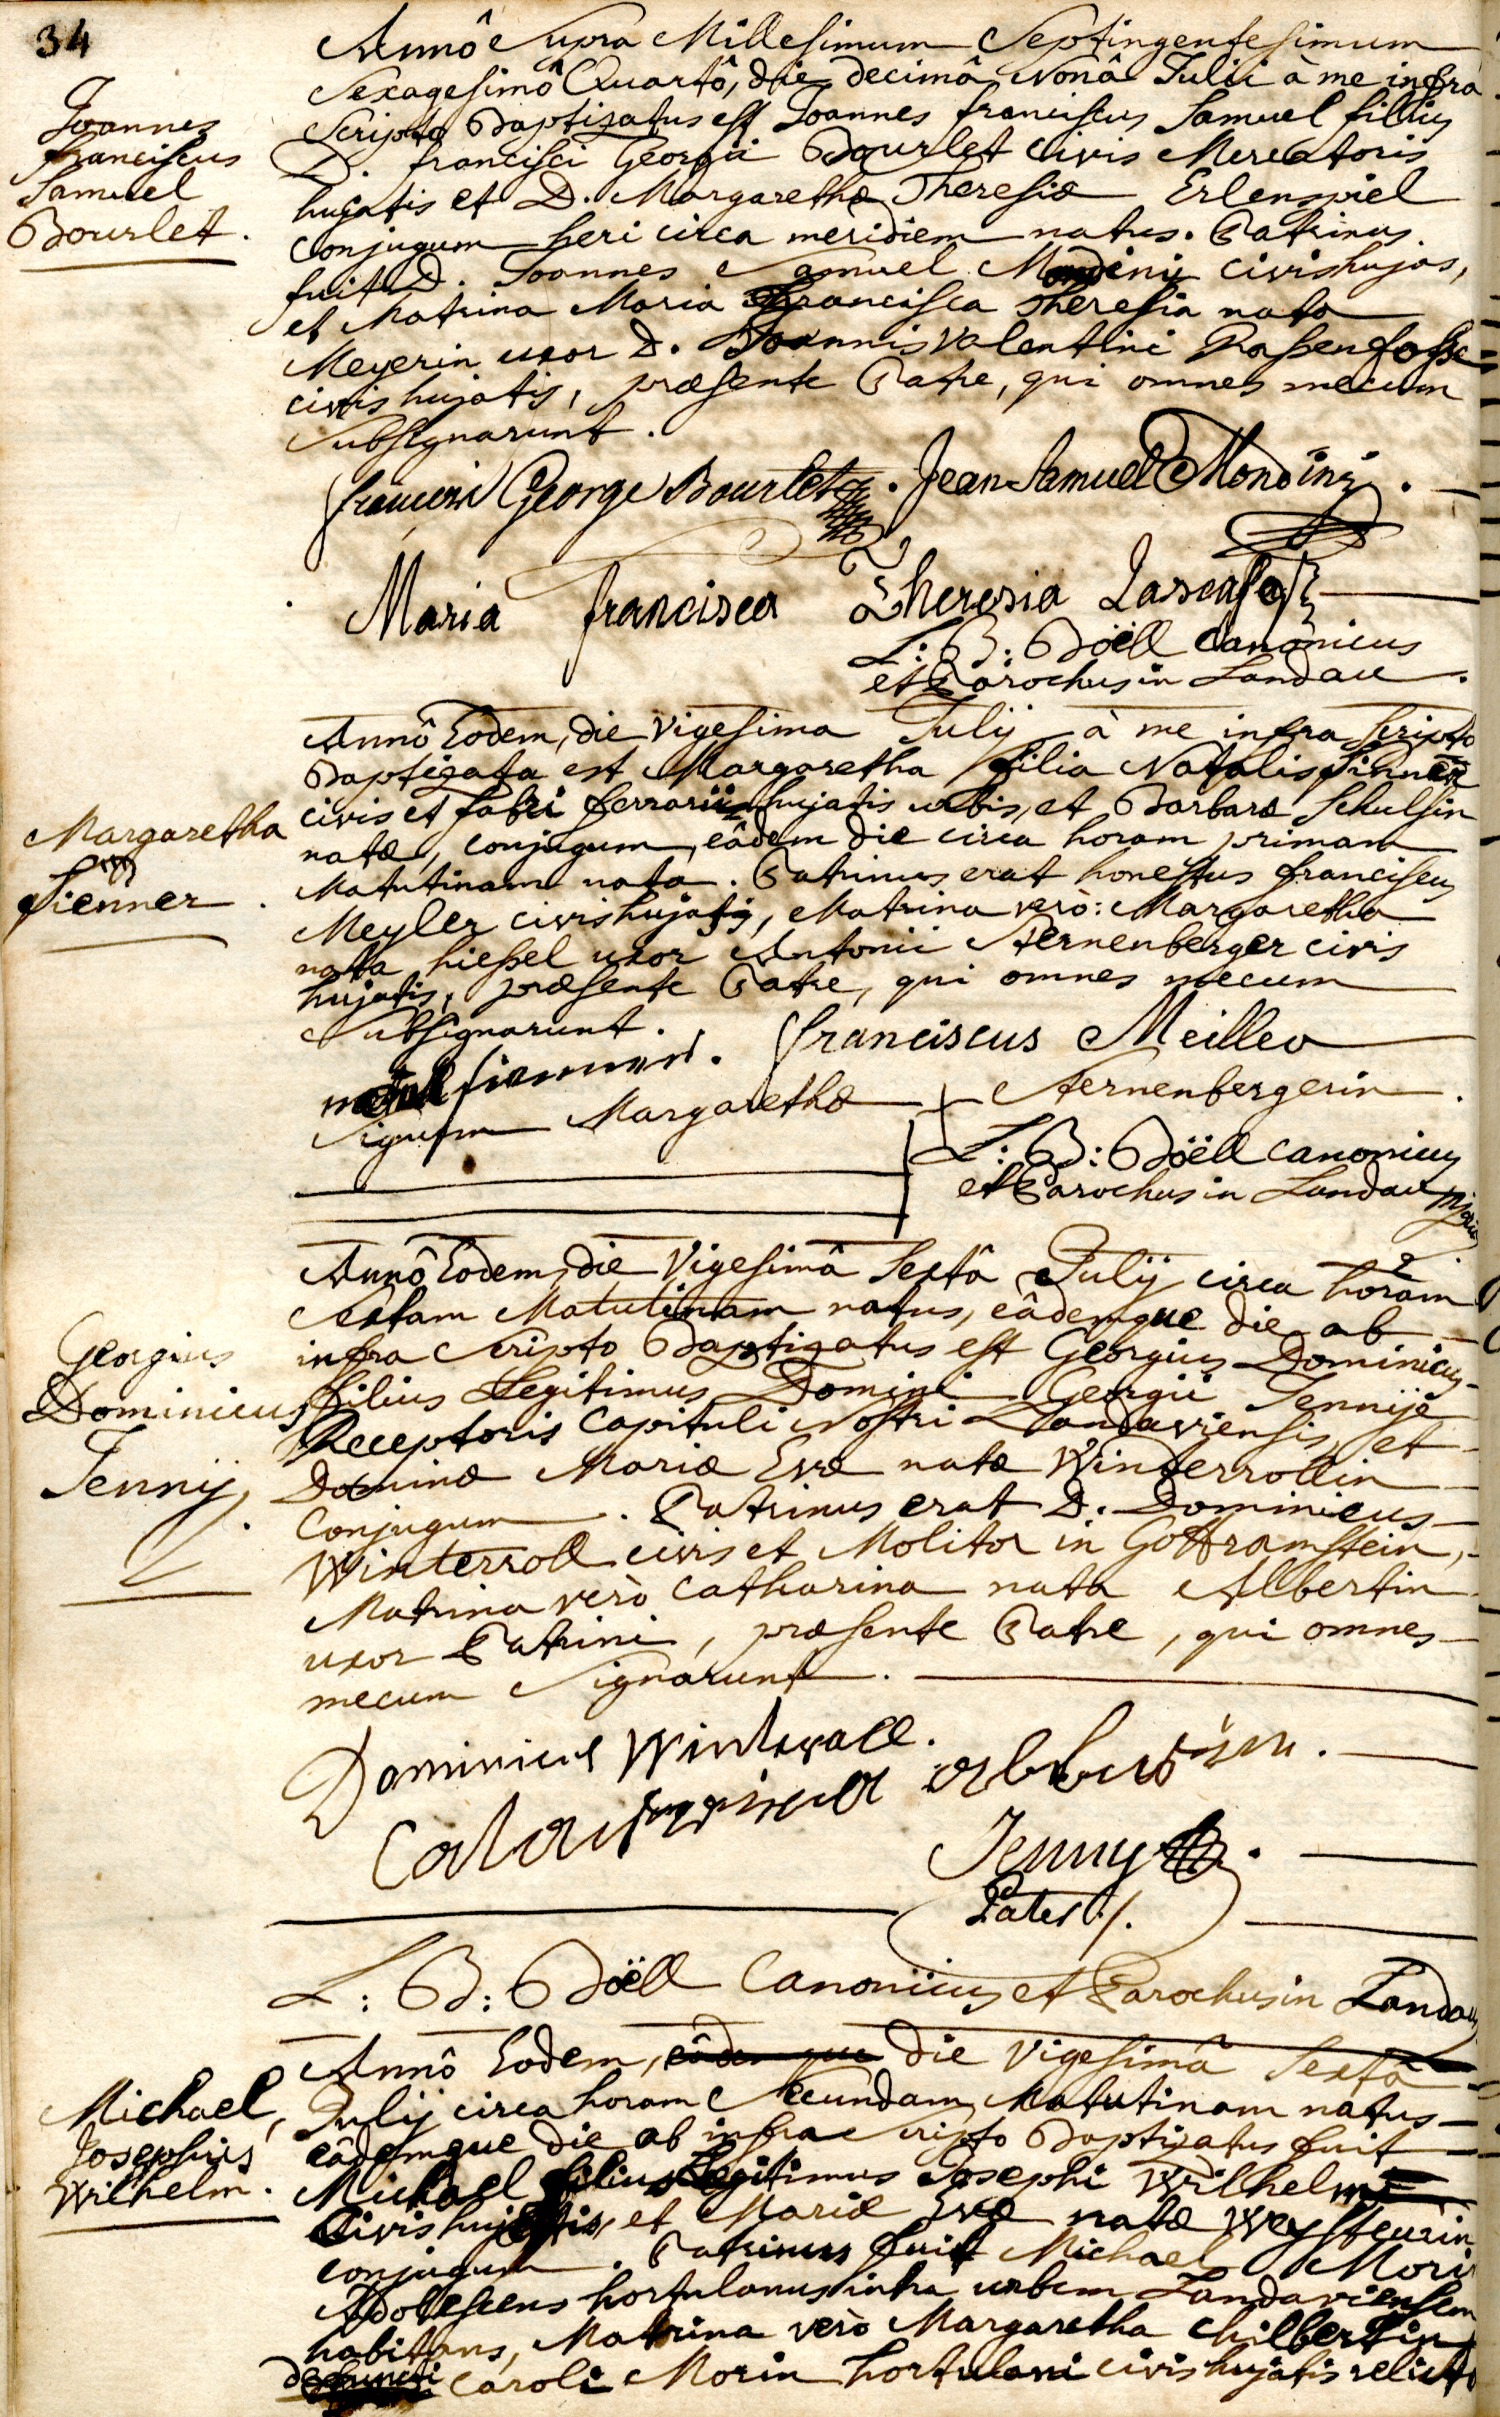 34
Joannes
franciscus
Samuel
Bourlet.
Annô Supra Millesimum Septingentesimum
Sexagesimô Quartô, die decimâ Nonâ Julii à me infra
Scripto Baptizatus est Joannes franciscus Samuel filius
D. francisci Georgii Bourlet Civis Mercatoris
hujatis et D. Margarethæ Theresiæ Erlenspiel
Conjugum heri circa meridiem natus. Patrinus
fuit D. Joannes Samuel Mondini civis hujas,
et Matrina Maria Francisca Theresia nata
Meyerin uxor D. Joannis Valentini
civis hujatis, præsente Patre, qui omnes mecum
Subsignarunt.
francois George Bourlet. Jean Samuel Mondini.
Maria francisca Theresia
L: B: Böell Canonicus
et Parochus in Landau.
Margaretha
Sienner.
Annô Eodem, die Vigesima Julij à me infra scripto
Baptizata est Margaretha filia Natalis Sinner
civis et fabri ferrarii hujatis urbis, et Barbaræ Schulsin
natæ, conjugum, eâdem die circa horam primam
Matutinam nata. Patrinus erat honestus franciscus
Meyler civis hujatis, Matrina verò: Margaretha
nata hießel uxor Antonii Sternenberger civis
hujatis, præsente Patre, qui omnes mecum
Subsignarunt. franciscus Meiller
Signum Margarethæ + Sternenbergerin.
L: B: Böell Canonicus
et Parochus in Landau
Georgius
Dominicus
Jennij.
Annô Eodem, die Vigesimâ Sextâ Julij circa horam
Sextam Matutinam natus, eâdemque die ab
infra Scripto Baptizatus est Georgius Dominicus
filius Legitimus Domini Georgii Jennije
Receptoris Capituli Nostri Landaviensis, et
Dominæ Mariæ Evæ natæ Winterrollin
Conjugum. Patrinus erat D. Dominicus
Winterroll civis et Molitor in Gottramstein,
Matrina verò Catharina nata Albertin
uxor Patrini, præsente Patre, qui omnes
mecum Signarunt.
Dominicus Winteroll.
Catarina albertin.
Jenny.
Pater /.
L: B: Böell Canonicus et Parochus in Landau
Michael,
Josephus
Wilhelm.
Annô Eodem, eâdemque die Vigesimâ Sextâ
Julij circa horam Secundam Matutinam natus
eâdemque die ab infra Scripto Baptizatus fuit
Michael filius Legitimus Josephi Wilhelm
Civis hujatis, et Mariæ Evæ natæ Weysteurin
conjugum. Patrinus fuit Michael Morin
Adolescens hortulanus intra urbem Landaviensem
habitans, Matrina verò Margaretha Chilbertin
defuncti Caroli Morin hortulani civis hujatis relicta